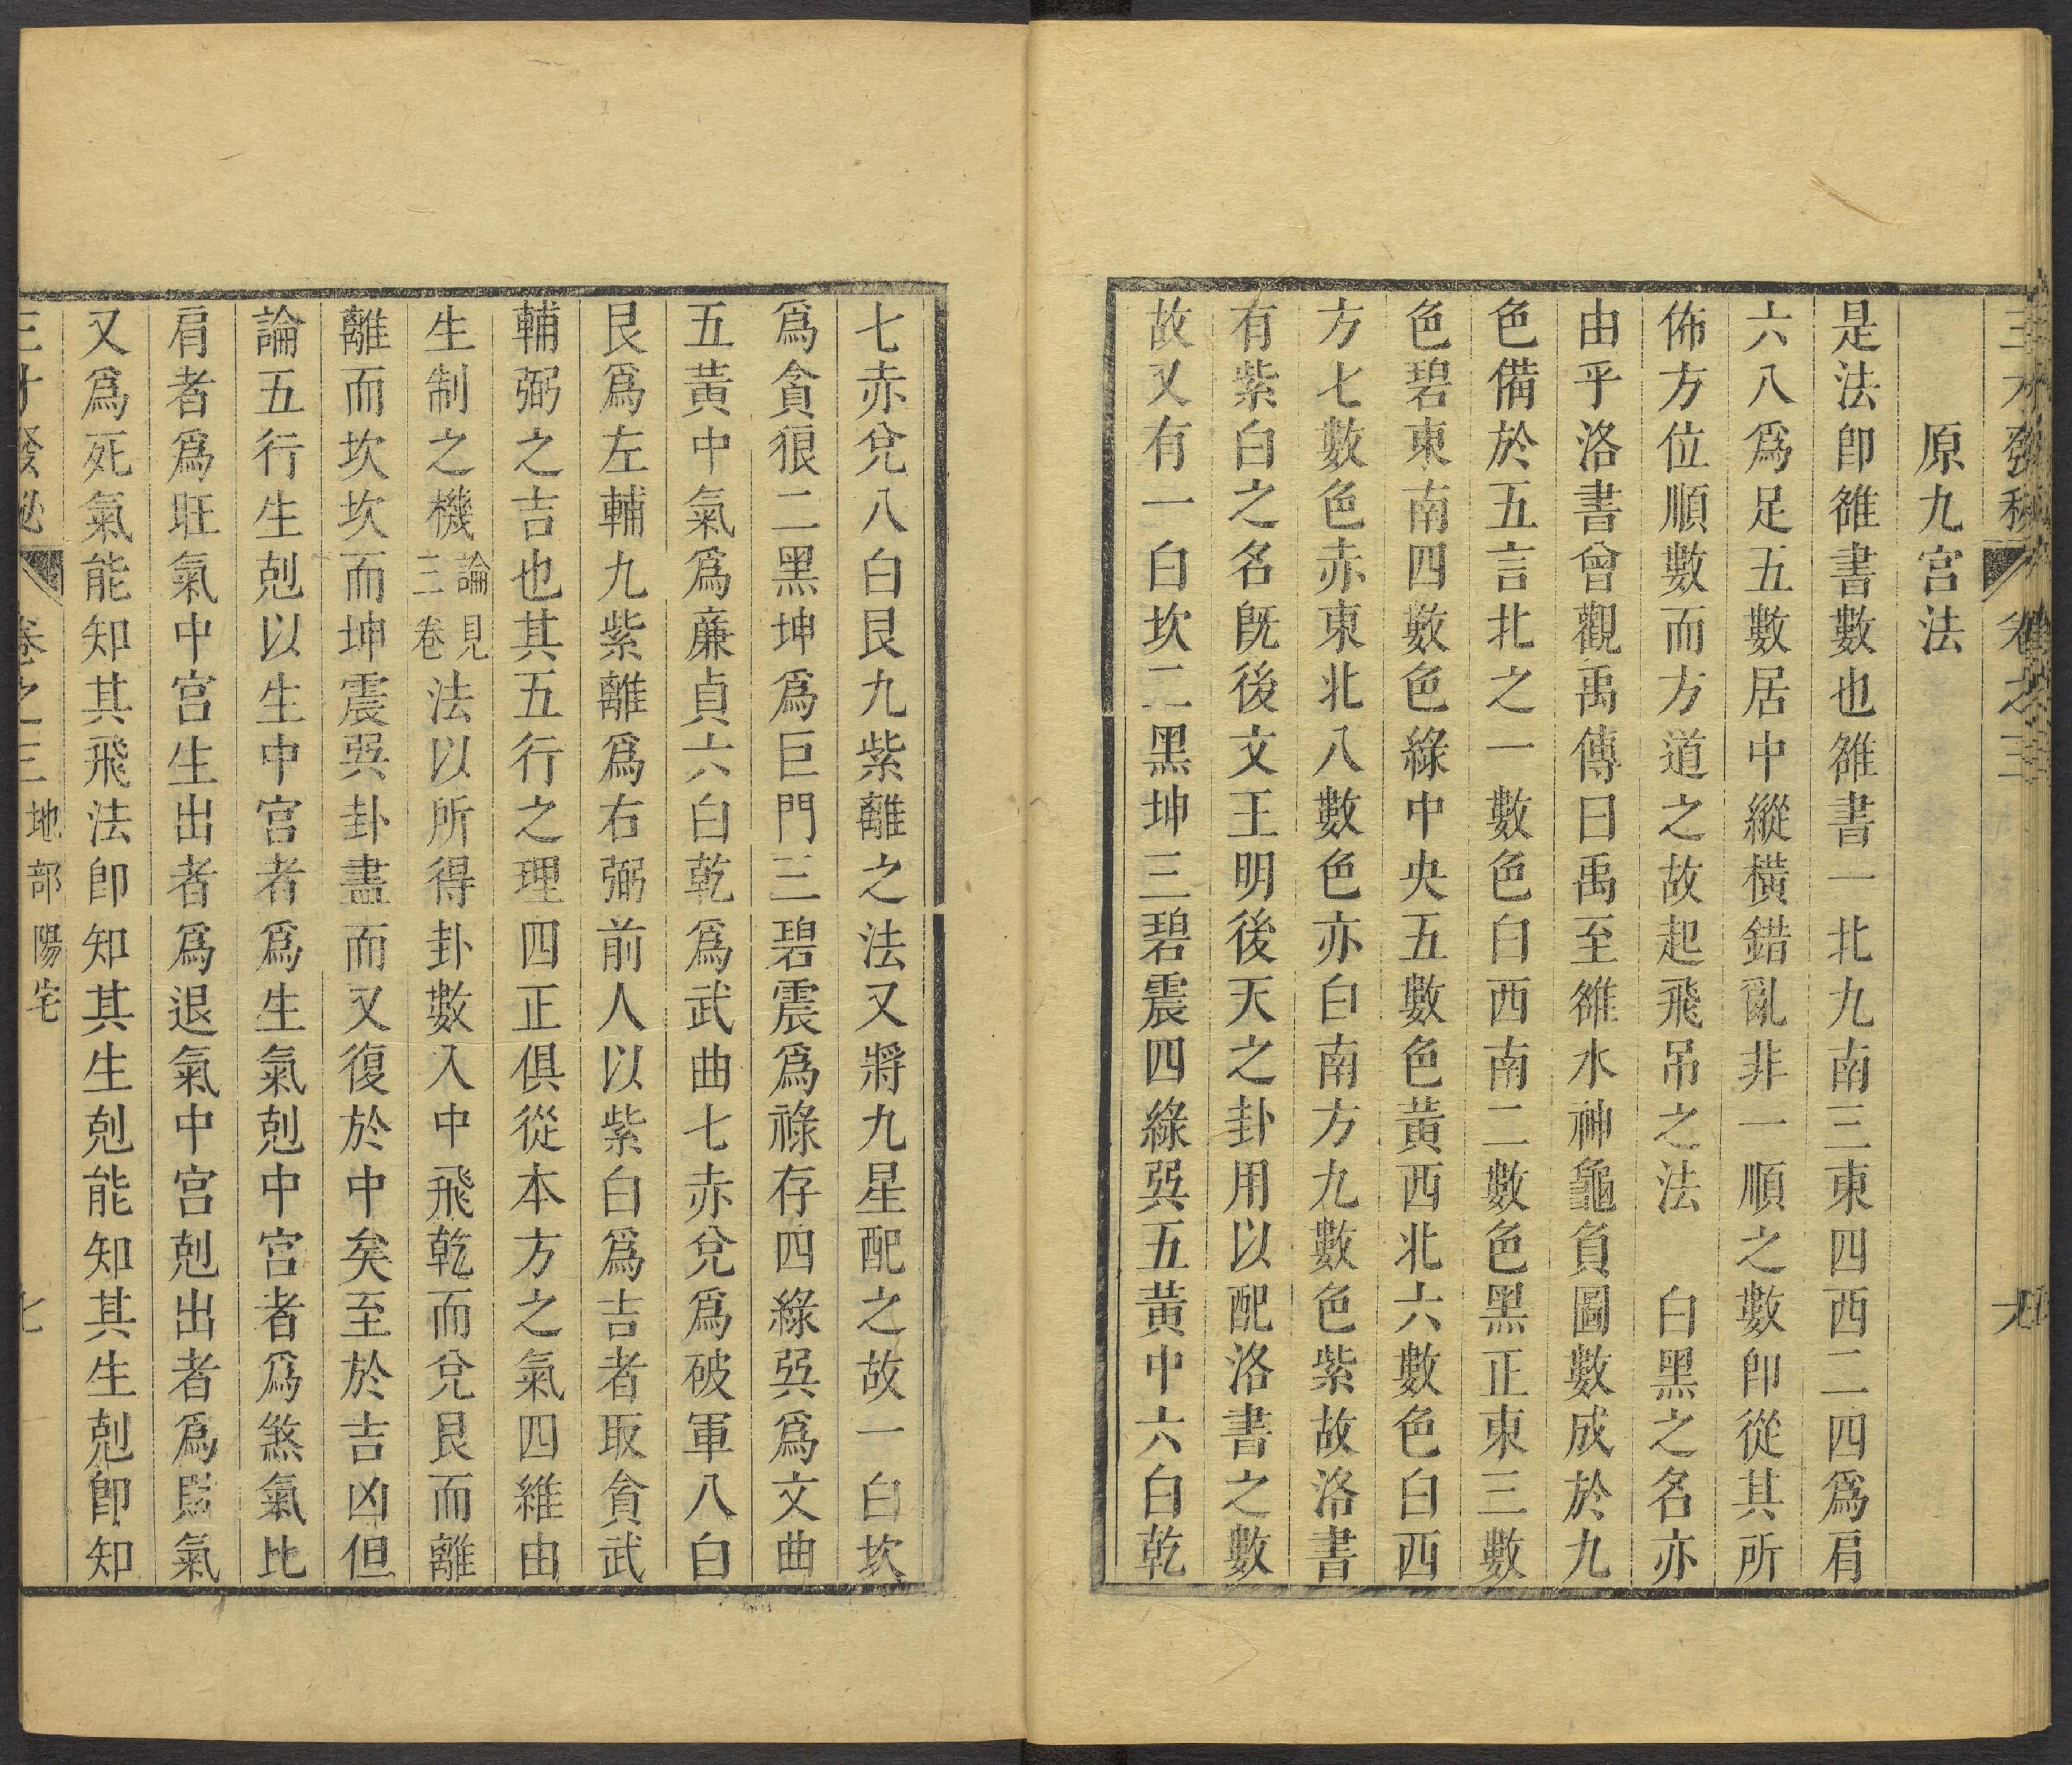 三才發秘 卷之三
原九宮法
是法卽雒書數也雒書一北九南三東四西二四爲肩
六八爲足五數居中縱橫錯亂非一順之數卽從其所
佈方位順數而方道之故起飛吊之法　白黑之名亦
由乎洛書曾觀禹傳曰禹至雒水神龜負圖數成於九
色備於五言北之一數色白西南二數色黑正東三數
色碧東南四數色綠中央五數色黃西北六數色白西
方七數色赤東北八數色亦白南方九數色紫故洛書
有紫白之名旣後文王明後天之卦用以配洛書之數
故又有一白坎二黑坤三碧震四綠巽五黃中六白乾
七赤兌八白艮九紫離之法又將九星配之故一白坎
爲貪狼二黑坤爲巨門三碧震爲祿存四綠巽爲文曲
五黃中氣爲亷貞六白乾爲武曲七赤兌爲破軍八白
艮爲左輔九紫離爲右弼前人以紫白爲吉者取貪武
輔弼之吉也其五行之理四正俱從本方之氣四維由
生制之機論見三卷法以所得卦數入中飛乾而兌艮而離
離而坎坎而坤震巽卦盡而又復於中矣至於吉凶但
論五行生剋以生中宮者爲生氣剋中宮者爲煞氣比
肩者爲旺氣中宮生出者爲退氣中宮剋出者爲氣
又爲死氣能知其飛法卽知其生剋能知其生剋卽知
三才發秘 卷之三 地部陽宅 七